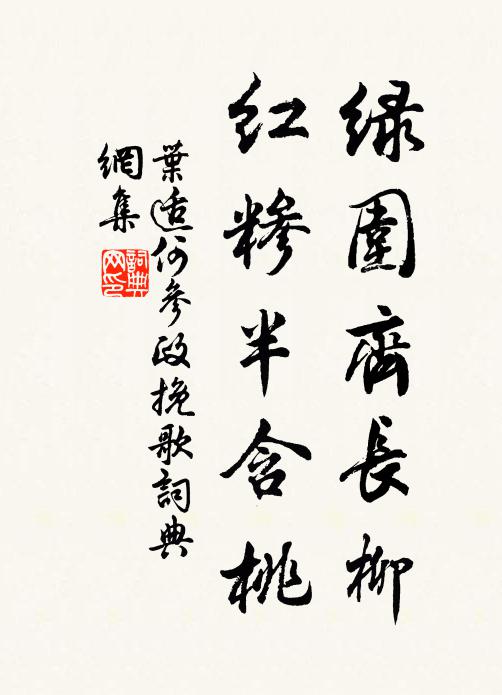 緑圍齊長柳
紅糝半含桃
葉適何參政挽歌詞典
網集
詞典
网印